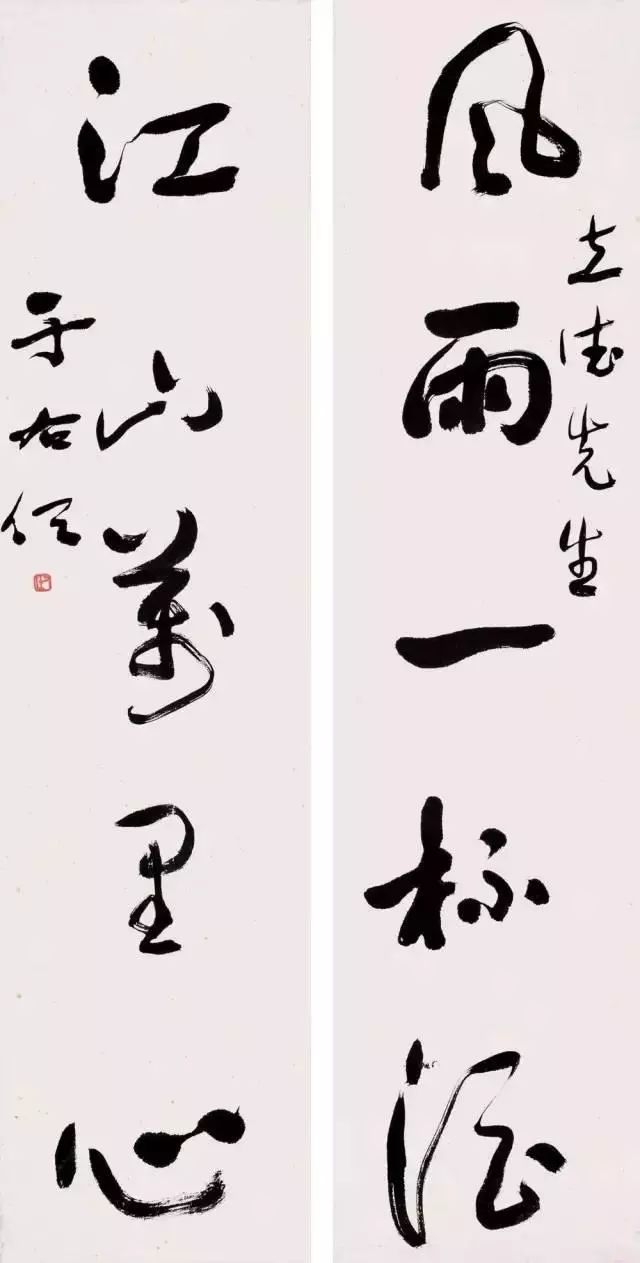 风雨一杯酒
立德先生
江山萬里心
于右任